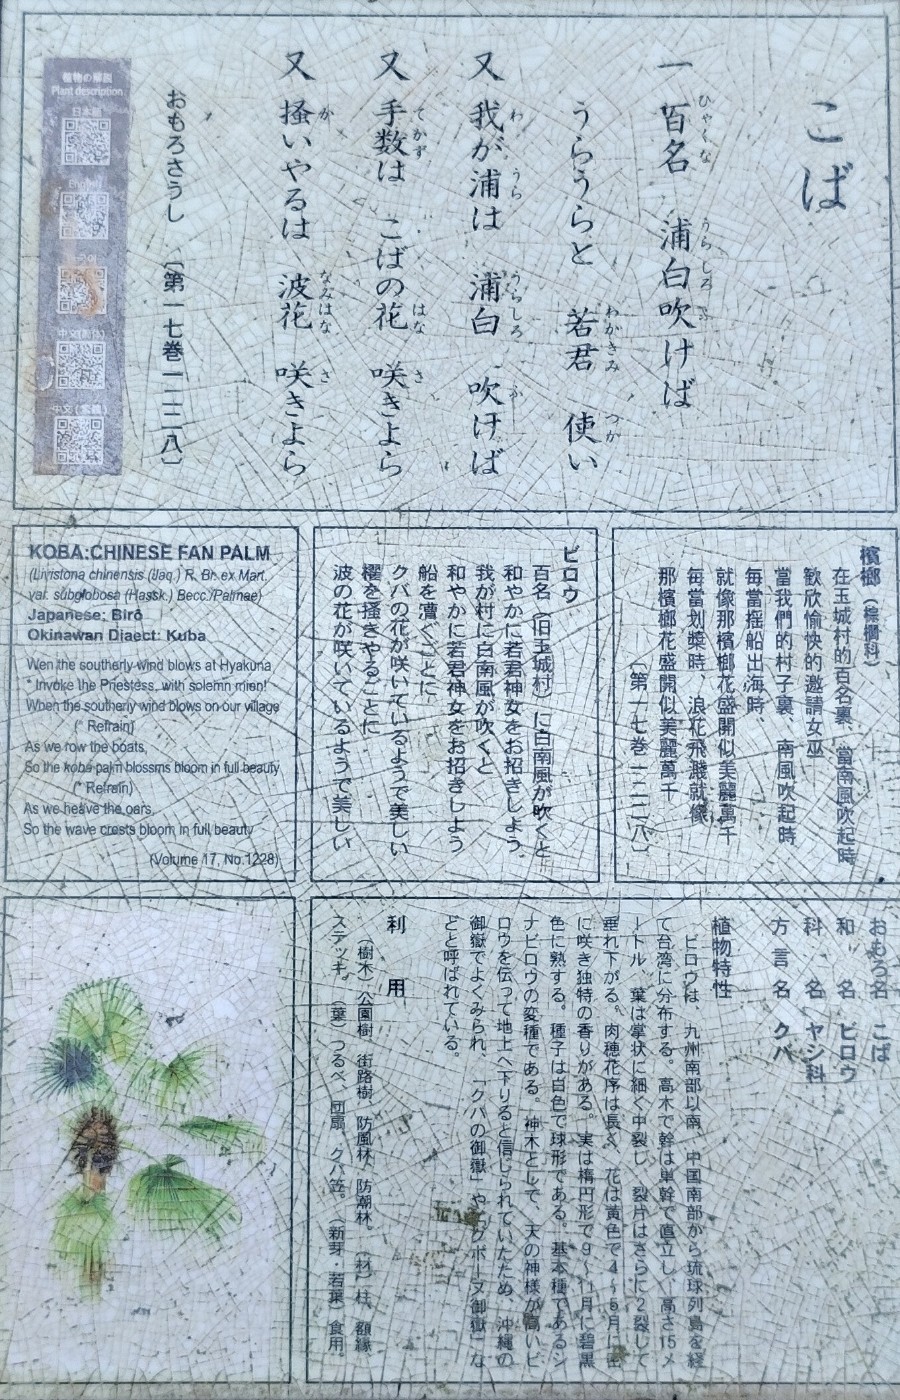 こば
一 百名 浦白吹けば
ひゃくな うらしろ ふ
うらうらと 若君 使い
わかきみ つか
又 我が浦は 浦白 吹けば
わ うら うらしろ ふ
又 手数は こばの花 咲きよら
てかず はな さ
又 掻いやるは 波花 咲きよら
か なみはな さ
おもろさうし 〔第一七巻一二二八〕
植物の解説
Plant description
日本語
English
中文(简体)
中文(繁體)
檳榔(棕櫚科)
在玉城村的百名裏、當南風吹起時
歡欣愉快的邀請女巫
當我們的村子裏、南風吹起時
每當搖船出海時、
就像那檳榔花盛開似美麗萬千
每當划槳時、浪花飛濺就像
那檳榔花盛開似美麗萬千
〔第一七巻一二二八〕
ビロウ
百名(旧玉城村)に白南風が吹くと
和やかに若君神女をお招きしよう
我が村に白南風が吹くと
和やかに若君神女をお招きしよう
船を漕ぐごとに
クバの花が咲いているようで美しい
櫂を掻きやるごとに
波の花が咲いているようで美しい
KOBA:CHINESE FAN PALM
(Livistona chinensis (Jaq.) R. Br. ex Mart.
val. subglobosa (Hassk.) Becc./Palmae)
Japanese: Birô
Okinawan Diaect: Kuba
Wen the southerly wind blows at Hyakuna
* Invoke the Priestess, with solemn mien!
When the southerly wind blows on our village
(* Refrain)
As we row the boats,
So the koba-palm blossms bloom in full beauty
(* Refrain)
As we heave the oars,
So the wave crests bloom in full beauty
(Volume 17, No.1228)
おもろ名 こば
和 名 ビロウ
科 名 ヤシ科
方言名 クバ
植物特性
ビロウは、九州南部以南、中国南部から琉球列島を経
て台湾に分布する。高木で幹は単幹で直立し、高さ15メ
ートル、葉は掌状に細く中裂し、裂片はさらに2裂して
垂れ下がる。肉穂花序は長く、花は黄色で4〜5月に密
に咲き独特の香りがある。実は楕円形で9〜11月に碧黒
色に熟する。種子は白色で球形である。基本種であるシ
ナビロウの変種である。神木として、天の神様が高いビ
ロウを伝って地上へ下りると信じられていたため、沖縄の
御嶽でよくみられ、「クバの御嶽」や「クボーヌ御嶽」な
どと呼ばれている。
利 用
(樹木)公園樹、街路樹、防風林、防潮林。(材)柱、額縁、
ステッキ。(葉)つるべ、団扇、クバ笠。(新芽・若葉)食用。